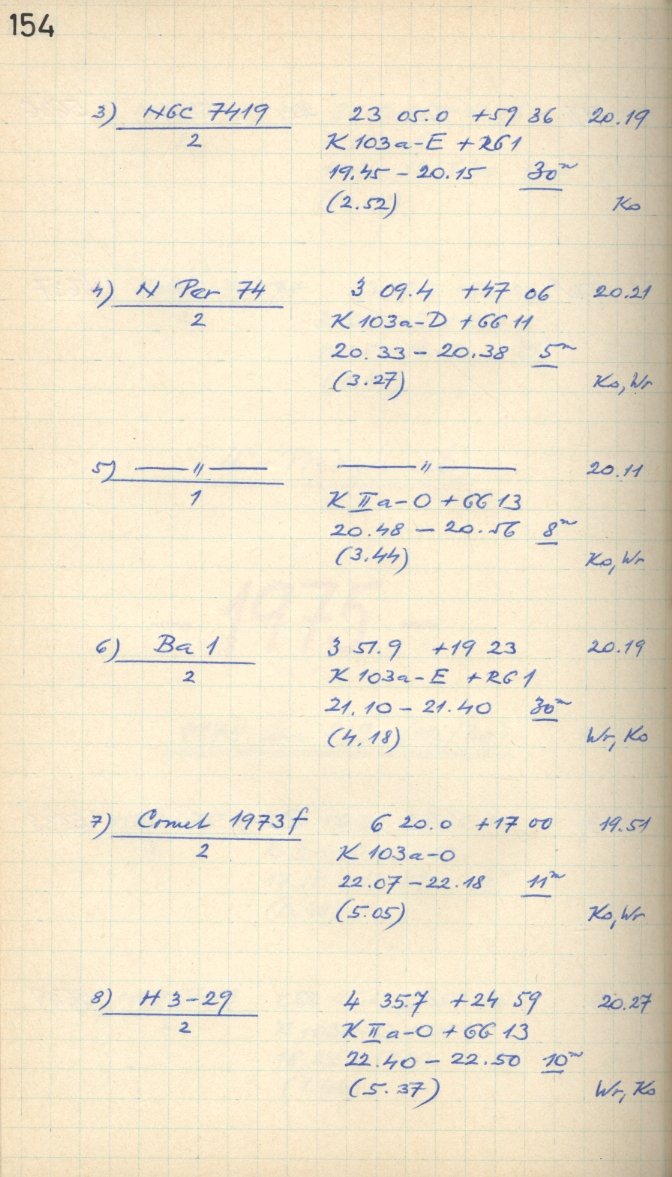 154
3) NGC 7419 23 05.0 +59 36 20.19
2 K 103a-E + RG1
19.45 - 20.15 30m
(2.52) Ko
4) N Per 74 3 09.4 +47 06 20.21
2 K 103a-D + GG 11
20.33 - 20.38 5m
(3.27) Ko, Wr
5) —— 〃 —— —— 〃 —— 20.11
1 K IIa-O + GG 13
20.48 - 20.56 8m
(3.44) Ko, Wr
6) Ba 1 3 51.9 +19 23 20.19
2 K 103a-E + RG 1
21.10 - 21.40 30m
(4.18) Wr, Ko
7) Comet 1973f 6 20.0 +17 00 19.51
2 K 103a-O
22.07 - 22.18 11m
(5.05) Ko, Wr
8) H 3-29 4 35.7 +24 59 20.27
2 K IIa-O + GG 13
22.40 - 22.50 10m
(5.37) Wr, Ko
- 1975 -